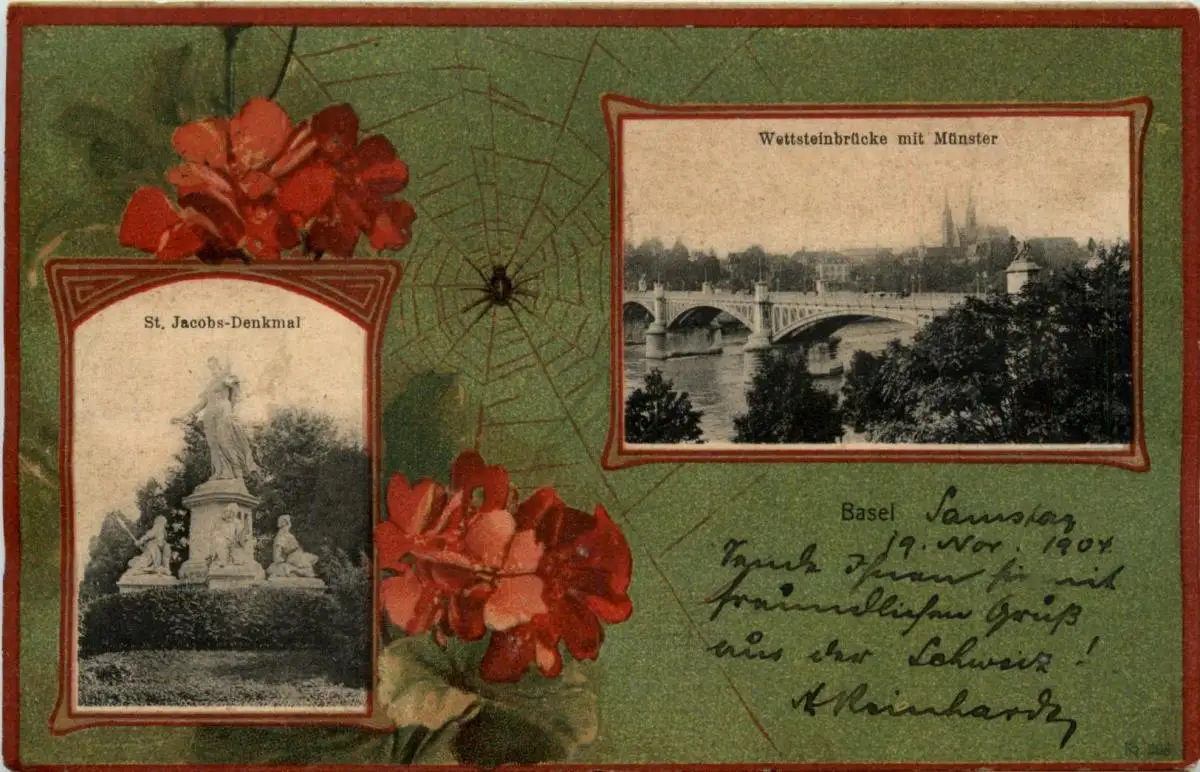 Wettsteinbrücke mit Münster
St. Jacobs-Denkmal
Basel Samstag
19. Nov. 1904
Sende Ihnen mit
freundlichen Gruß
aus der Schweiz!
A Reinhardt